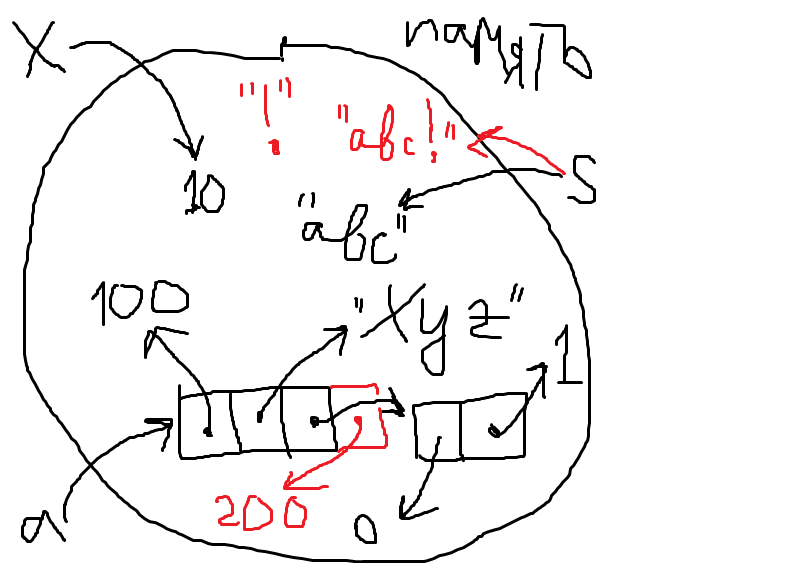 память
X
"!" "abc!"
10 S
"abc"
100 "xyz"
1
a 200 0